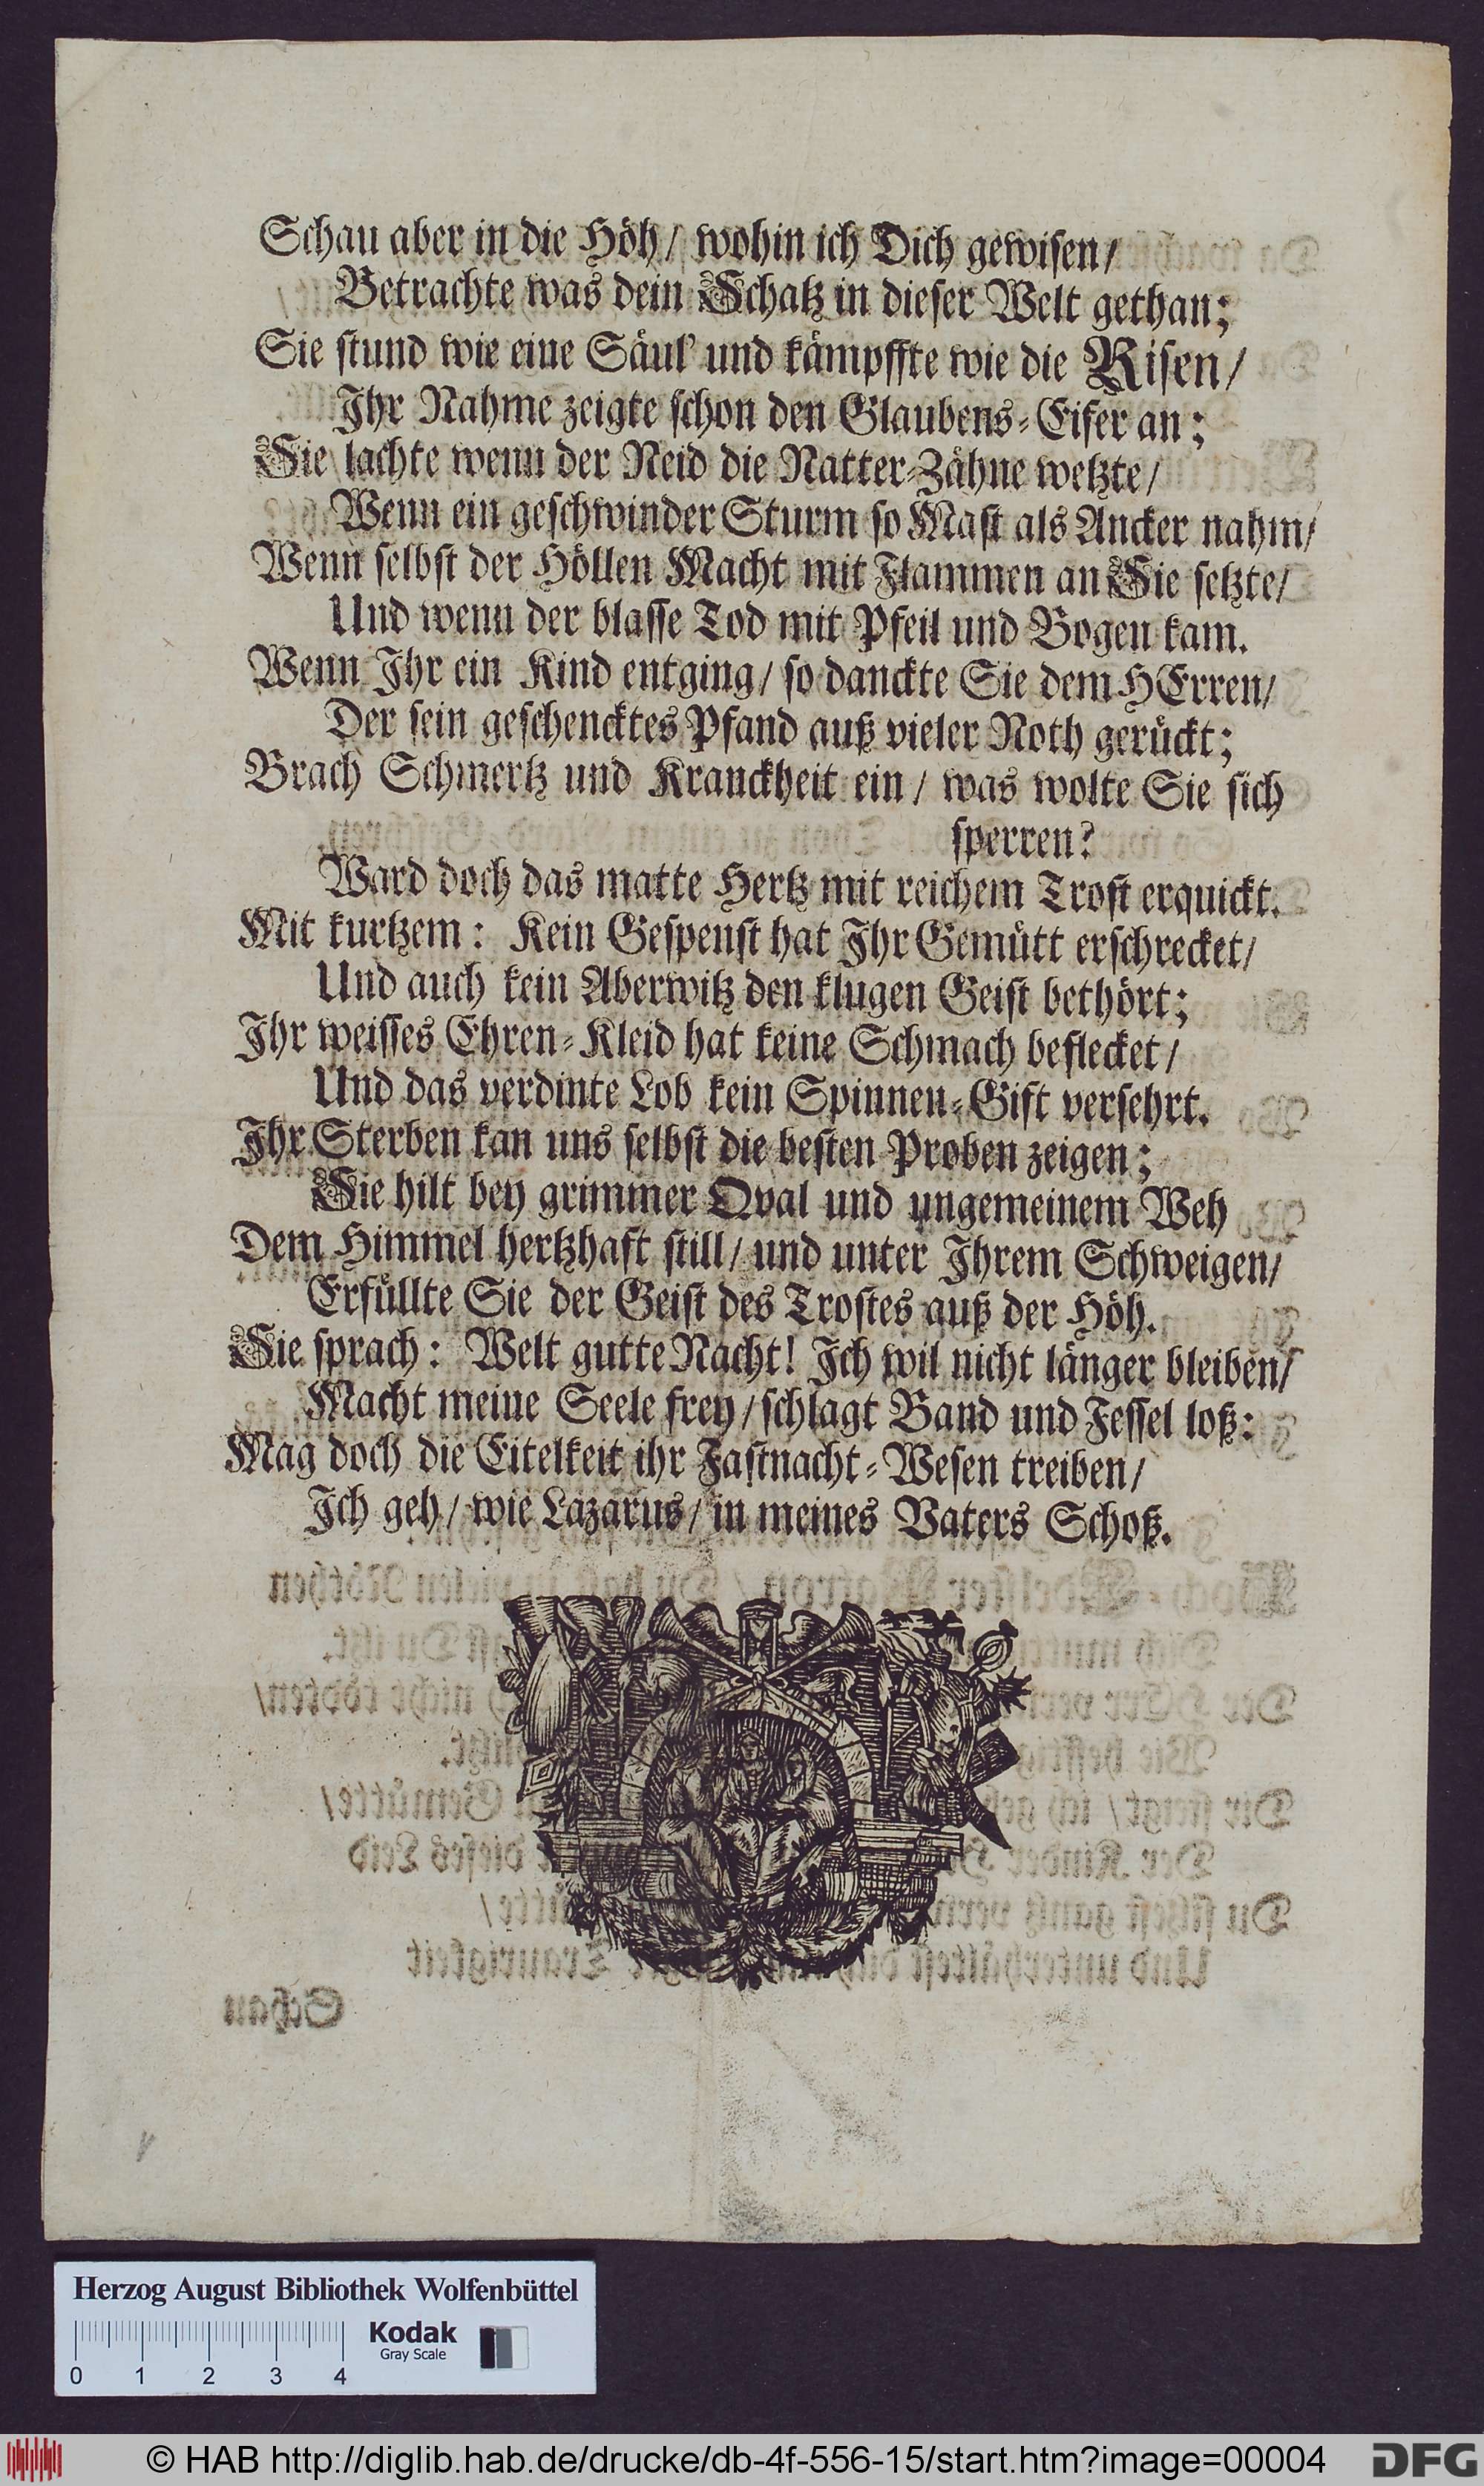 Schau aber in die Höh/ wohin ich Dich gewisen/
Betrachte was dein Schatz in dieser Welt gethan;
Sie stund wie eine Säul' und kämpffte wie die Risen/
Ihr Nahme zeigte schon den Glaubens-Eifer an;
Sie lachte wenn der Neid die Natter-Zähne wetzte/
Wenn ein geschwinder Sturm so Mast als Ancker nahm/
Wenn selbst der Höllen Macht mit Flammen an Sie setzte/
Und wenn der blasse Tod mit Pfeil und Bogen kam.
Wenn Ihr ein Kind entging/ so danckte Sie dem HErren/
Der sein geschencktes Pfand auß vieler Noth gerückt;
Brach Schmertz und Kranckheit ein/ was wolte Sie sich
sperren?
Ward doch das matte Hertz mit reichem Trost erquickt.
Mit kurtzem: Kein Gespenst hat Ihr Gemütt erschrecket/
Und auch kein Aberwitz den klugen Geist bethört;
Ihr weisses Ehren-Kleid hat keine Schmach beflecket/
Und das verdinte Lob kein Spinnen-Gift versehrt.
Ihr Sterben kan uns selbst die besten Proben zeigen;
Sie hilt bey grimmer Qval und ungemeinem Weh
Dem Himmel hertzhaft still/ und unter Ihrem Schweigen/
Erfüllte Sie der Geist des Trostes auß der Höh.
Sie sprach: Welt gutte Nacht! Ich wil nicht länger bleiben/
Macht meine Seele frey/ schlagt Band und Fessel loß:
Mag doch die Eitelkeit ihr Fastnacht-Wesen treiben/
Ich geh/ wie Lazarus/ in meines Vaters Schoß.
Herzog August Bibliothek Wolfenbüttel
Kodak
Gray Scale
0 1 2 3 4
© HAB http://diglib.hab.de/drucke/db-4f-556-15/start.htm?image=00004
DFG